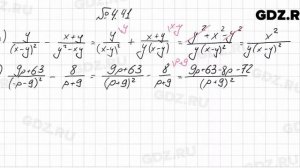 № 4.41 GDZ.RU
) y/(x-y)² - (x+y)/(y²-xy) = y/(x-y)² + (x+y)/(y(x-y)) = (y²+x²-y²)/(y(x-y)²) = x²/(y(x-y)²)
) (9p+63)/(p+9)² - 8/(p+9) = (9p+63)/(p+9)² - 8/(p+9) = (9p+63-8p-72)/(p+9)²
GDZ.RU